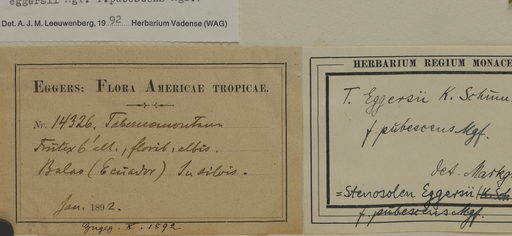 eggersii Mgf. f. pubescens Mgf.
Det. A. J. M. Leeuwenberg, 1992 Herbarium Vadense (WAG)
EGGERS: FLORA AMERICAE TROPICAE.
Nr. 14326. Tabernaemontana
Frutex 6' alt., florib. albis.
Balao (Ecuador) In silvis.
Jan. 1892.
HERBARIUM REGIUM MONACE
T. Eggersii K. Schum.
f. pubescens Mgf.
det. Markgr
=Stenosolen Eggersii (K. Sch
f. pubescens Mgf.